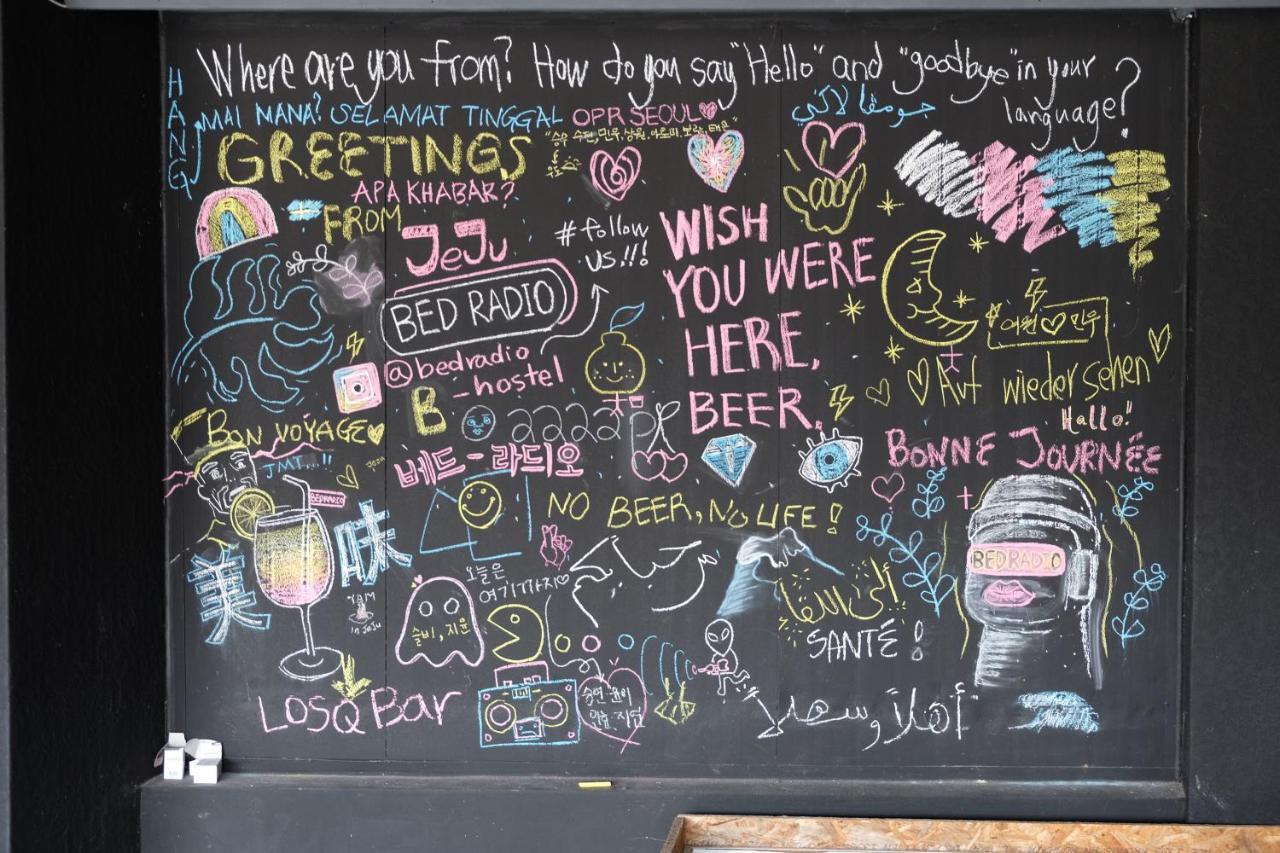 Where are you from? How do you say "Hello" and "goodbye" in your language?
HANG
MAI MANA? SELAMAT TINGGAL
OPR SEOUL
GREETINGS
APA KHABAR?
FROM
JeJu
#follow us!!!
BED RADIO
@bedradio
-hostel
B
2222
베드-라디오
WISH
YOU WERE
HERE,
BEER.
여원♡민우
Auf wiedersehen
Hallo!
BONNE JOURNÉE
BON VÓYAGE
JMT...!!
BEDRADIO
NO BEER, NO LIFE!
美
味
YAM
in JeJu
오늘은
여기까지♡
슬비, 지윤
مرحبا
إلى اللقا
SANTÉ!
BEDRADIO
LOSQ Bar
أهلاً و سهلاً